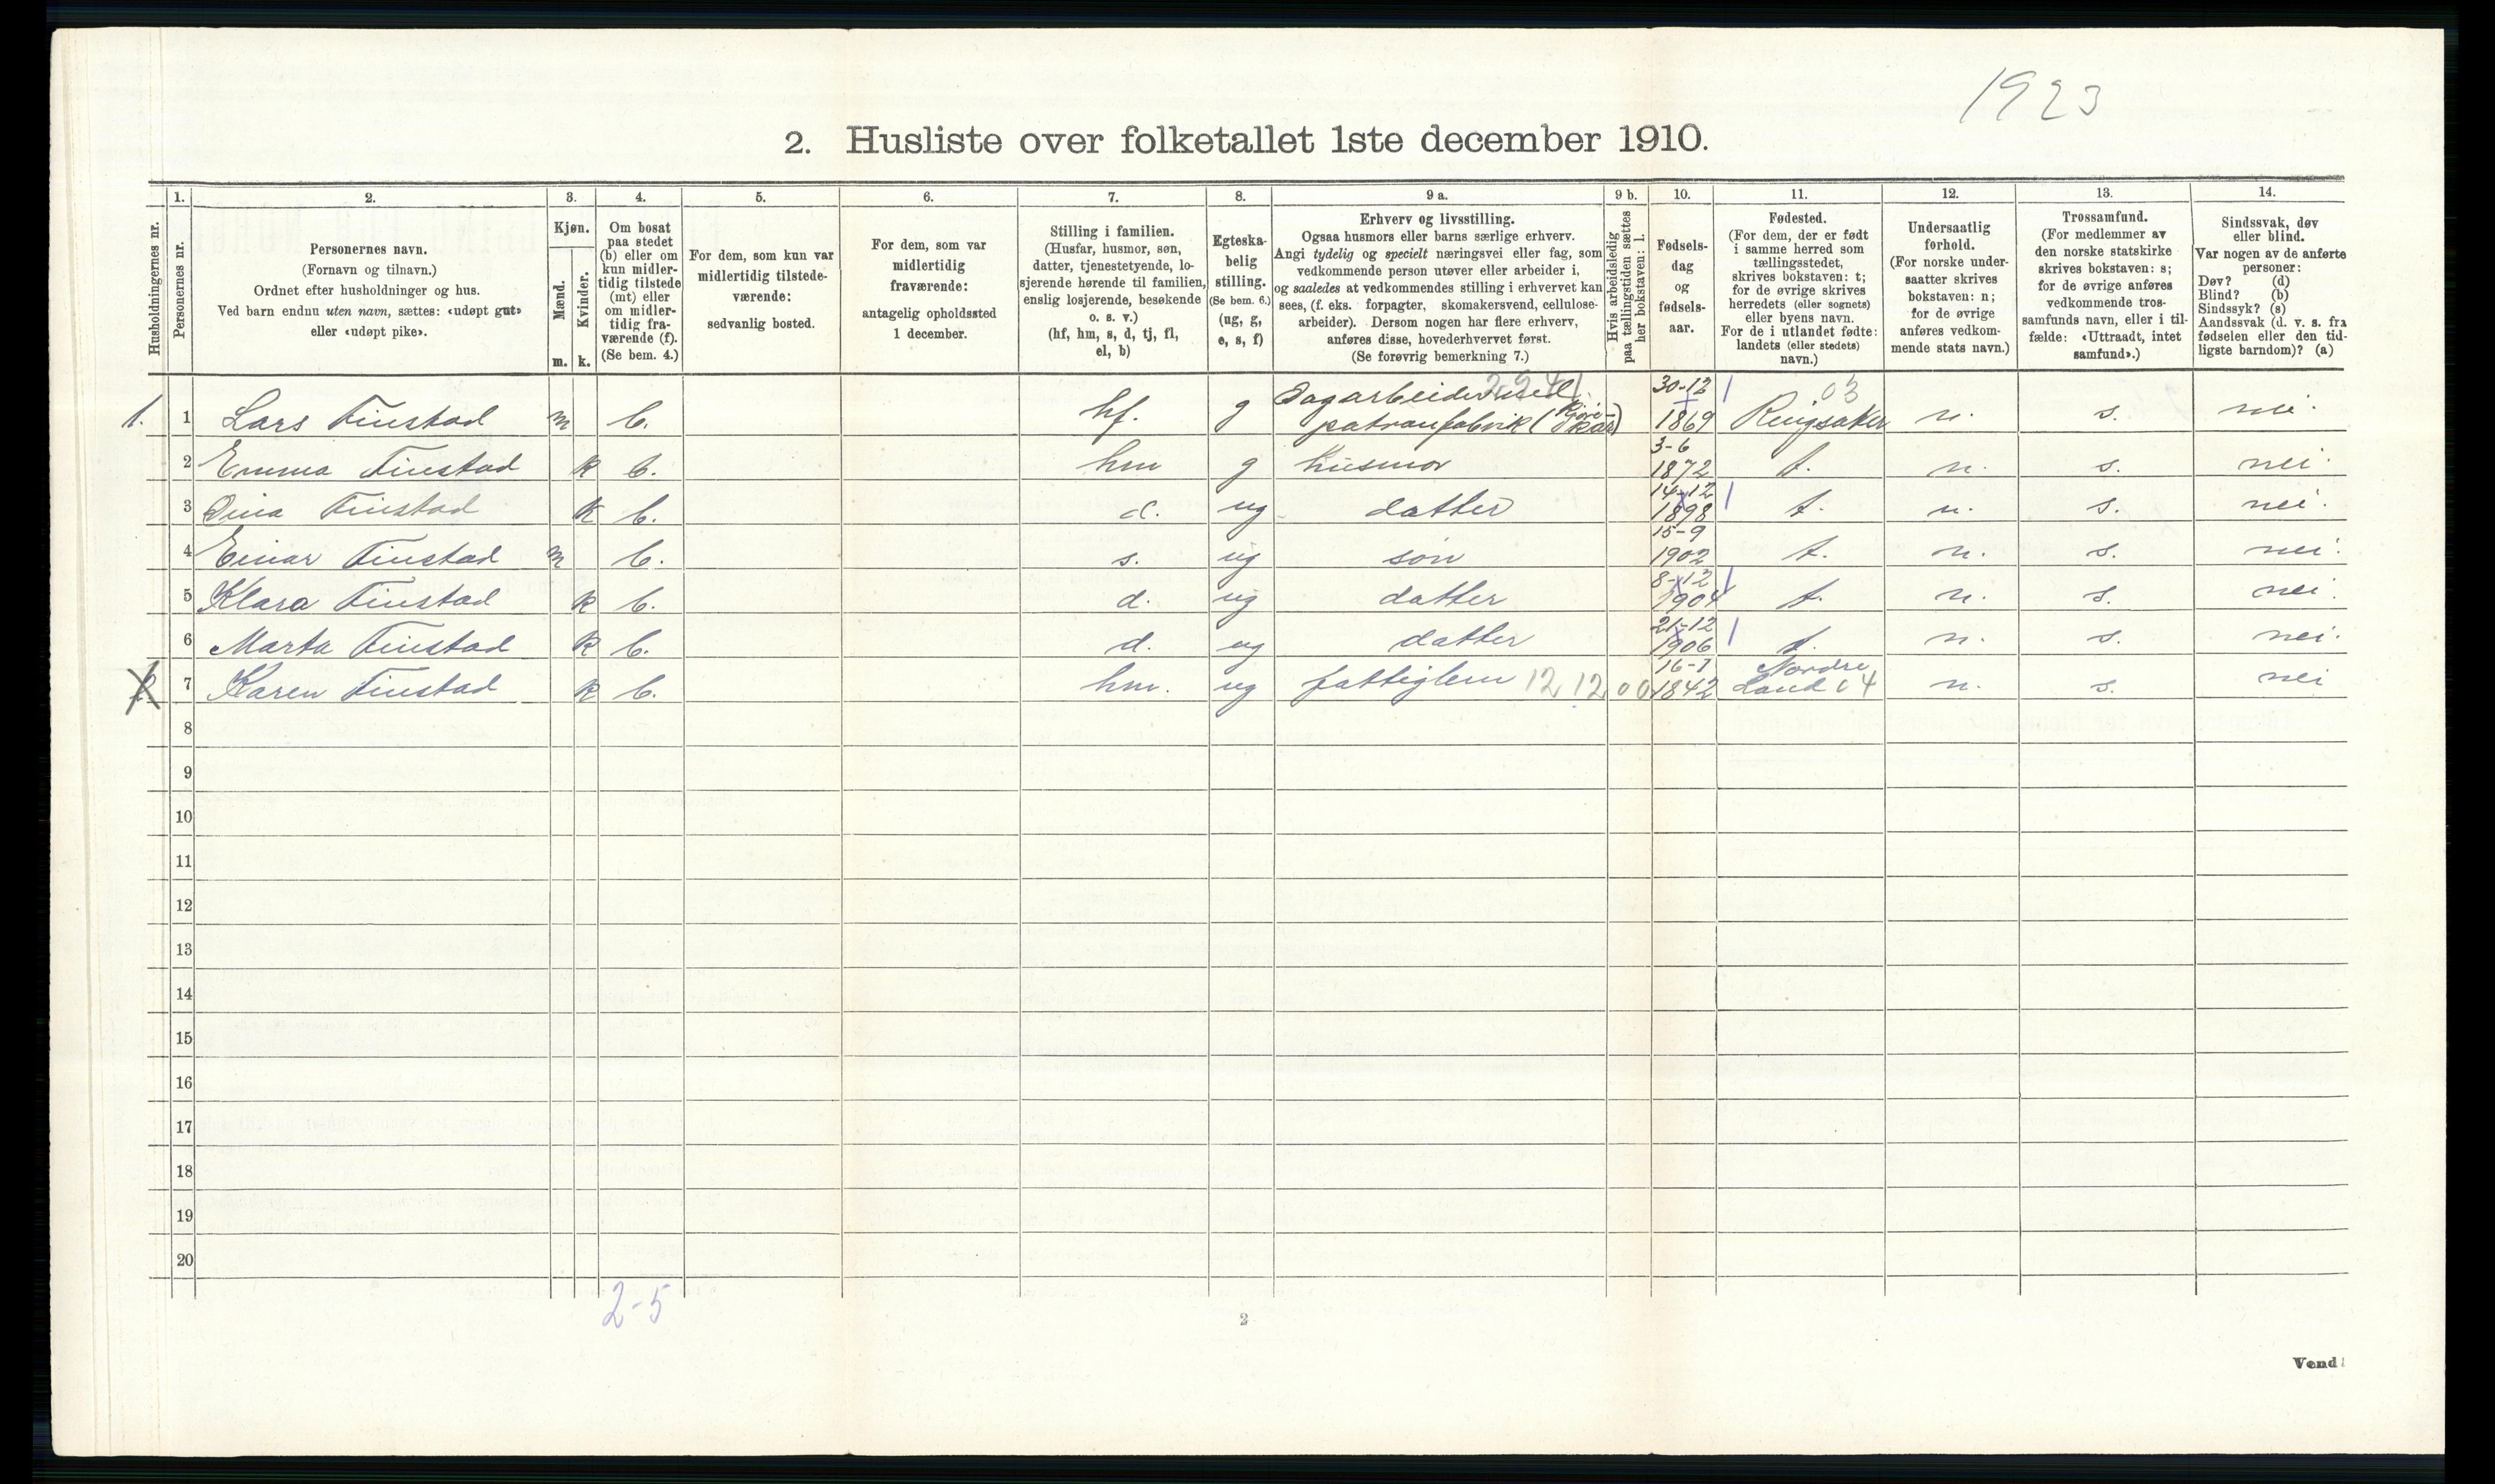 1923
2. Husliste over folketallet 1ste december 1910.
Husholdningernes nr.
1.
Personernes nr.
2.
Personernes navn.
(Fornavn og tilnavn.)
Ordnet efter husholdninger og hus.
Ved barn endnu uten navn, sættes: «udøpt gut»
eller «udøpt pike».
3.
Kjøn.
Mænd.
Kvinder.
m. k.
4.
Om bosat
paa stedet
(b) eller om
kun midler-
tidig tilstede
(mt) eller
om midler-
tidig fra-
værende (f).
(Se bem. 4.)
5.
For dem, som kun var
midlertidig tilstede-
værende:
sedvanlig bosted.
6.
For dem, som var
midlertidig
fraværende:
antagelig opholdssted
1 december.
7.
Stilling i familien.
(Husfar, husmor, søn,
datter, tjenestetyende, lo-
sjerende hørende til familien,
enslig losjerende, besøkende
o. s. v.)
(hf, hm, s, d, tj, fl,
el, b)
8.
Egteska-
belig
stilling.
(Se bem. 6.)
(ug, g,
e, s, f)
9 a.
Erhverv og livsstilling.
Ogsaa husmors eller barns særlige erhverv.
Angi tydelig og specielt næringsvei eller fag, som
vedkommende person utøver eller arbeider i,
og saaledes at vedkommendes stilling i erhvervet kan
sees, (f. eks. forpagter, skomakersvend, cellulose-
arbeider). Dersom nogen har flere erhverv,
anføres disse, hovederhvervet først.
(Se forøvrig bemerkning 7.)
9 b.
Hvis arbeidsledig
paa tællingstiden sættes
her bokstaven: l.
10.
Fødsels-
dag
og
fødsels-
aar.
11.
Fødested.
(For dem, der er født
i samme herred som
tællingsstedet,
skrives bokstaven: t;
for de øvrige skrives
herredets (eller sognets)
eller byens navn.
For de i utlandet fødte:
landets (eller stedets)
navn.)
12.
Undersaatlig
forhold.
(For norske under-
saatter skrives
bokstaven: n;
for de øvrige
anføres vedkom-
mende stats navn.)
13.
Trossamfund.
(For medlemmer av
den norske statskirke
skrives bokstaven: s;
for de øvrige anføres
vedkommende tros-
samfunds navn, eller i til-
fælde: «Uttraadt, intet
samfund».)
14.
Sindssvak, døv
eller blind.
Var nogen av de anførte
personer:
Døv? (d)
Blind? (b)
Sindssyk? (s)
Aandssvak (d. v. s. fra
fødselen eller den tid-
ligste barndom)? (a)
1. 1 Lars Finstad m b. hf. g Dagarbeider ved patronfabrik 30-12 1869 Ringsaker 03 n. s. nei.
2 Emma Finstad k b. hm g husmor 3-6 1872 t. n. s. nei.
3 Dina Finstad k b. d. ug datter 14-12 1898 t. n. s. nei.
4 Einar Finstad m b. s. ug søn 15-9 1902 t. n. s. nei.
5 Klara Finstad k b. d. ug datter 8-12 1904 t. n. s. nei.
6 Marta Finstad k b. d. ug datter 21-12 1906 t. n. s. nei.
7 Karen Finstad k b. hm. ug fattiglem 12 12 00 16-7 1842 Nordre Land 04 n. s. nei
8
9
10
11
12
13
14
15
16
17
18
19
20
2-5
2
Vend!